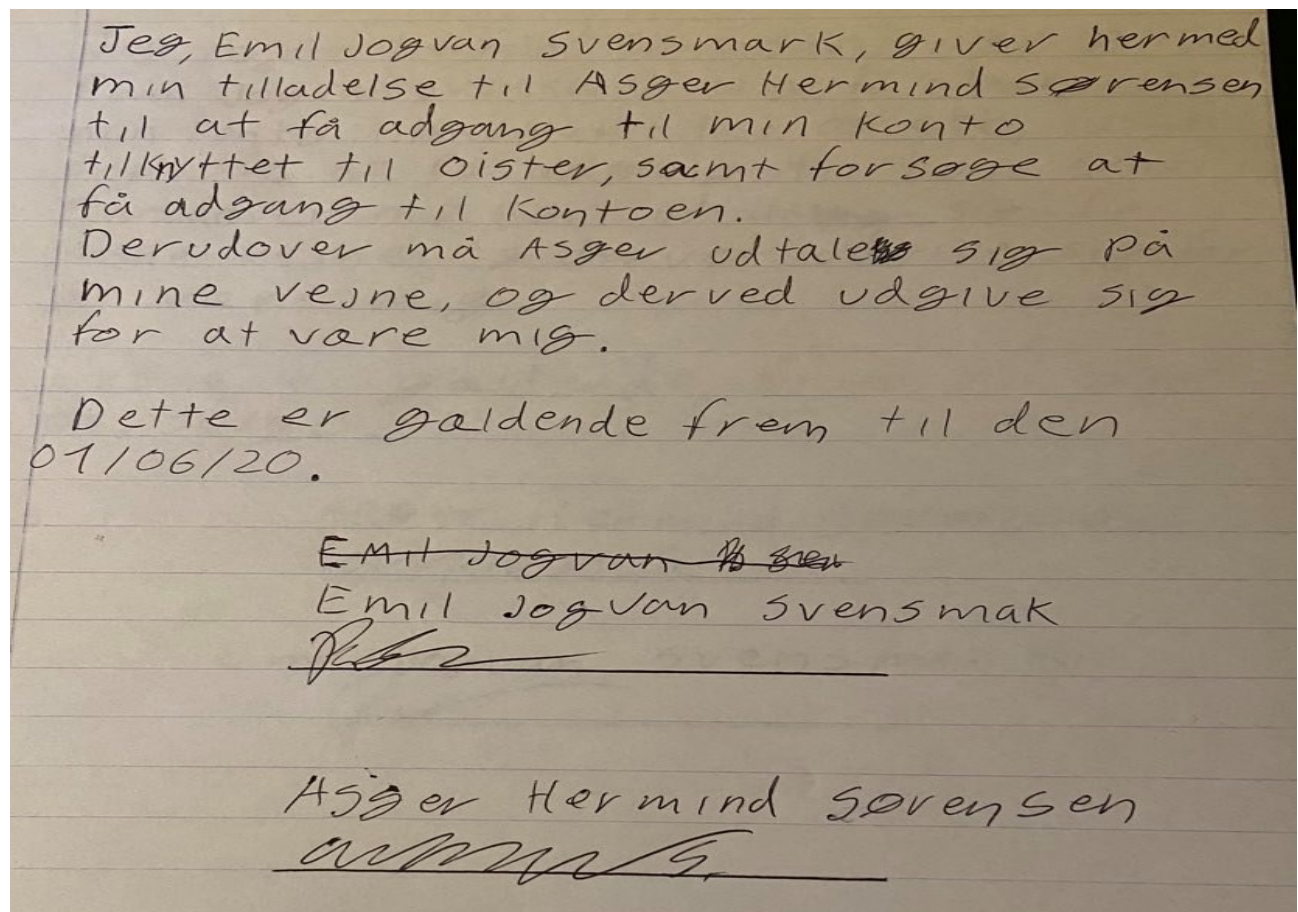 Jeg, Emil Jogvan Svensmark, giver hermed
min tilladelse til Asger Hermind Sørensen
til at få adgang til min konto
tilknyttet til Oister, samt forsøge at
få adgang til kontoen.
Derudover må Asger udtale sig på
mine vejne, og derved udgive sig
for at være mig.
Dette er gældende frem til den
01/06/20.
Emil Jogvan
Emil Jogvan Svensmak
Asger Hermind Sørensen